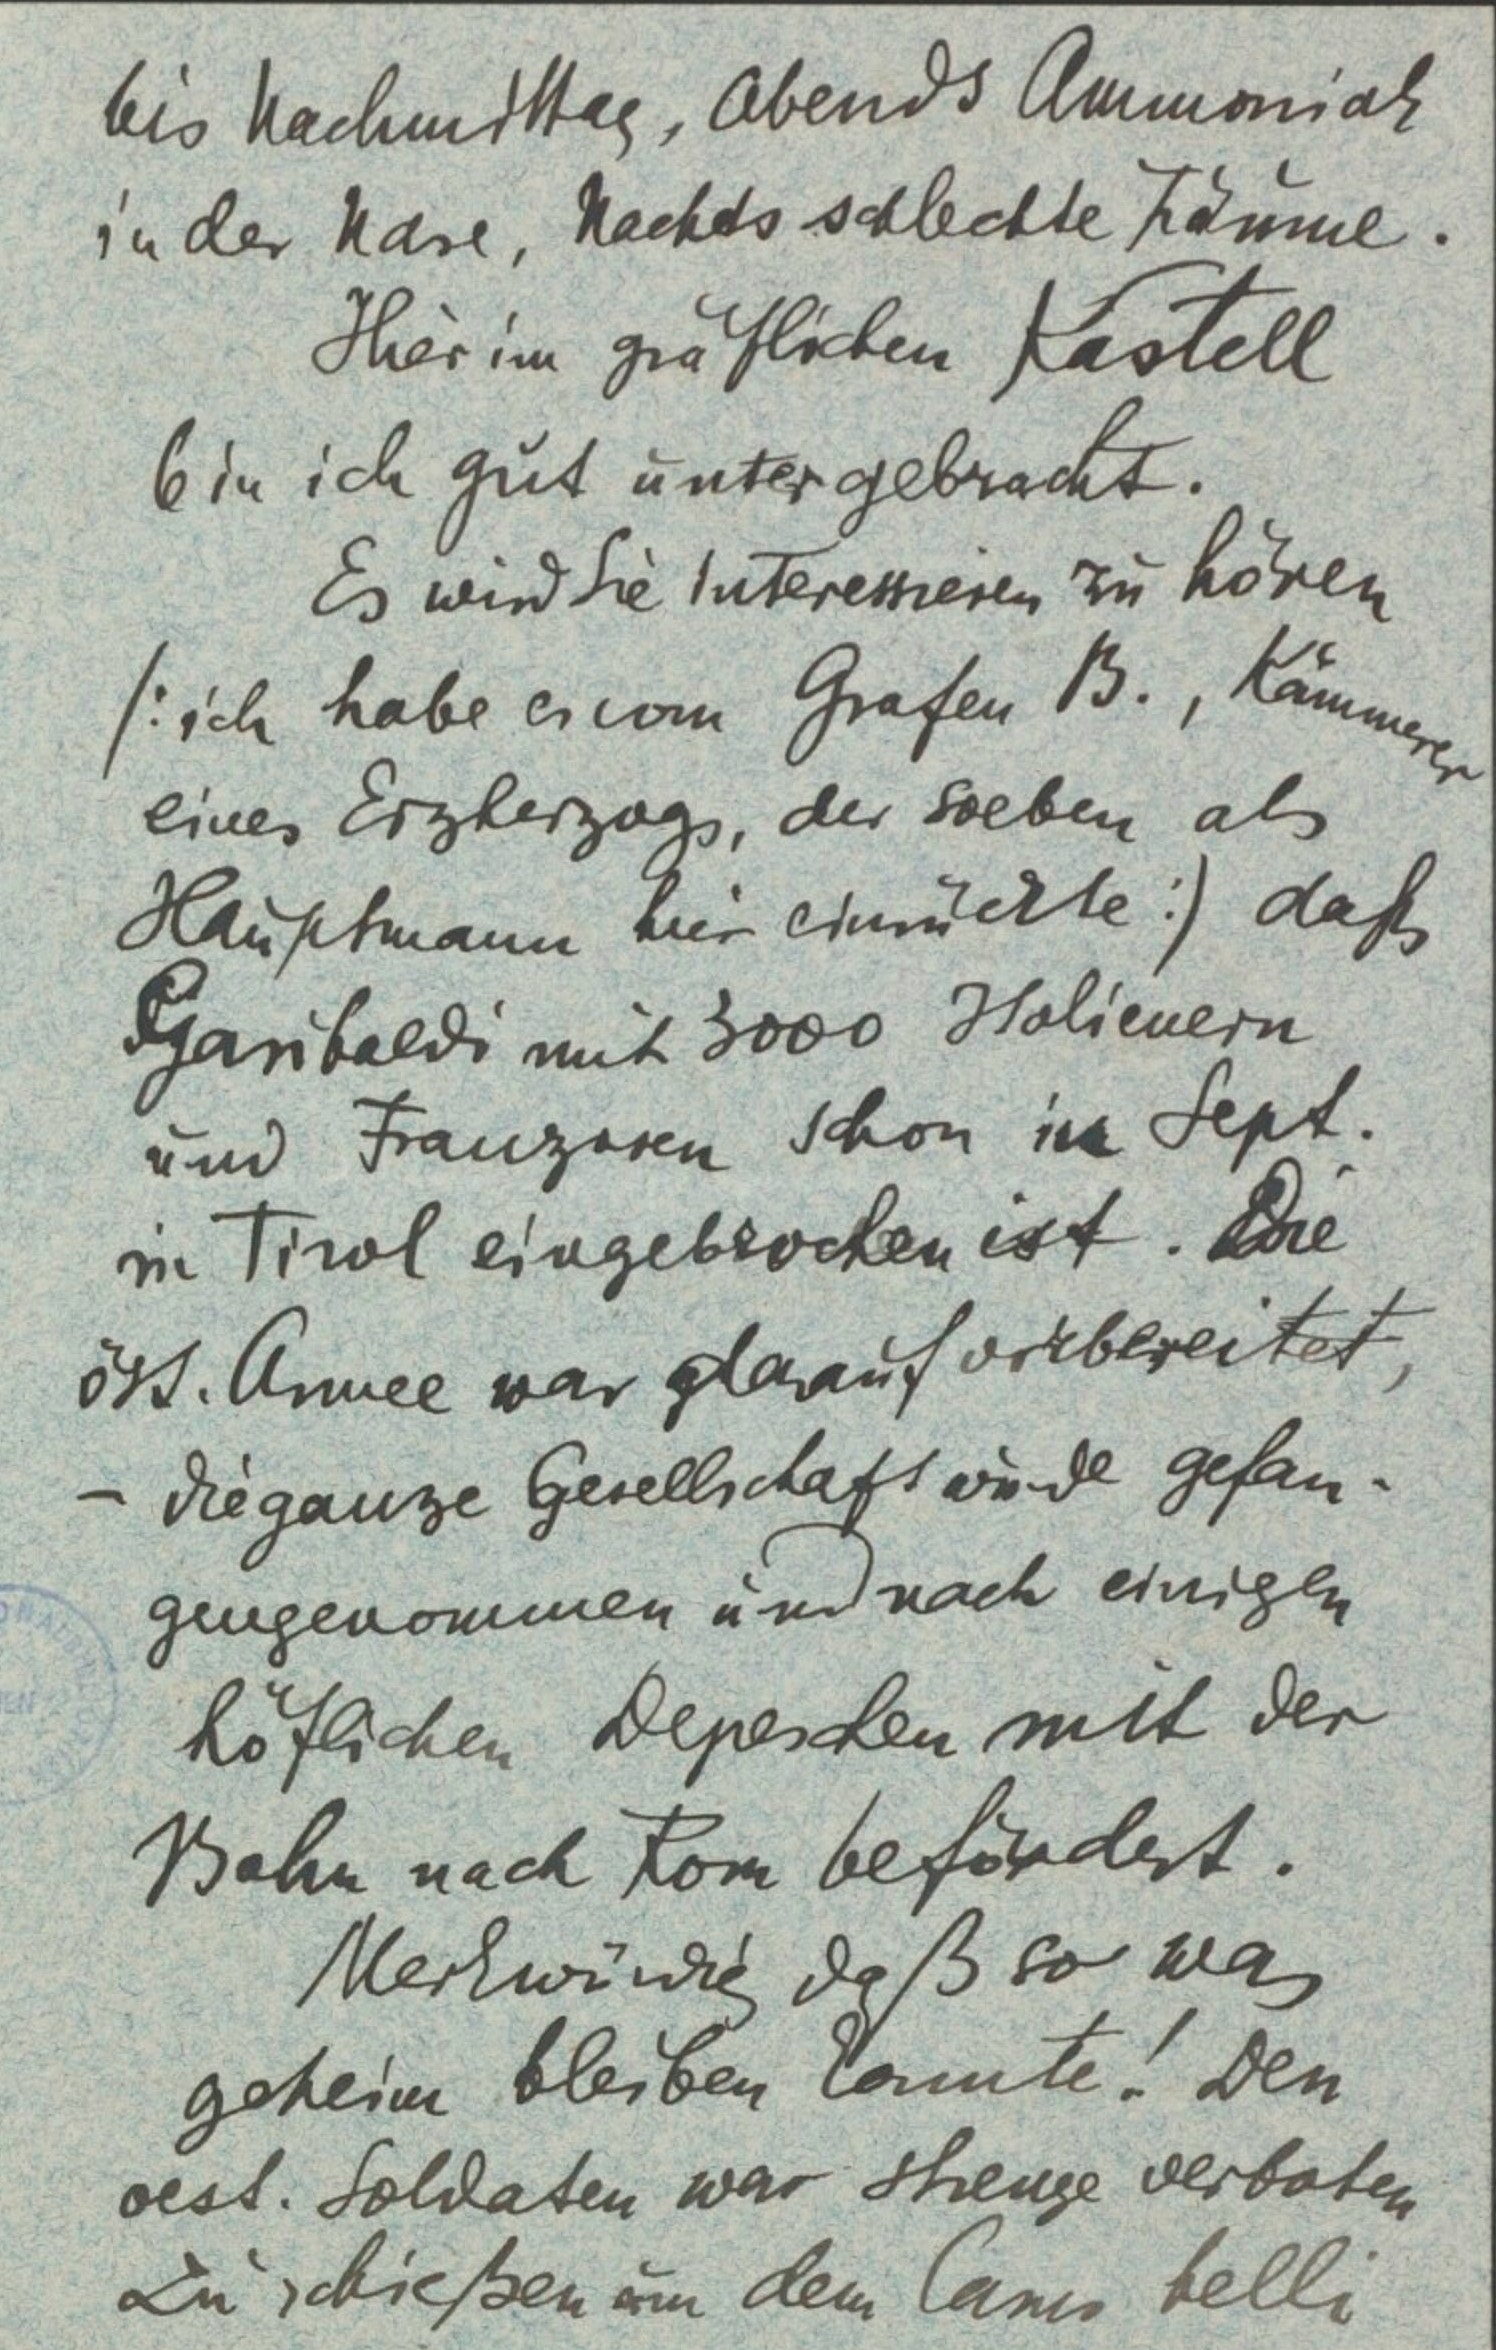 bis Nachmittag, Abends Ammoniak
in der Nase, Nachts schlechte Träume.
Hier im gräflichen Kastell
bin ich gut untergebracht.
Es wird Sie interessieren zu hören
/: ich habe es vom Grafen B., Kämmerer
eines Erzherzogs, der soeben als
Hauptmann hier einrückte :) daß
Garibaldi mit 3000 Italienern
und Franzosen schon im Sept.
in Tirol eingebrochen ist. Die
öst. Armee war darauf vorbereitet,
– die ganze Gesellschaft wurde gefan-
gengenommen und nach einigen
höflichen Depeschen mit der
Bahn nach Rom befördert.
Merkwürdig daß so was
geheim bleiben konnte! Den
oest. Soldaten war strenge verboten
zu schießen um dem Casus belli